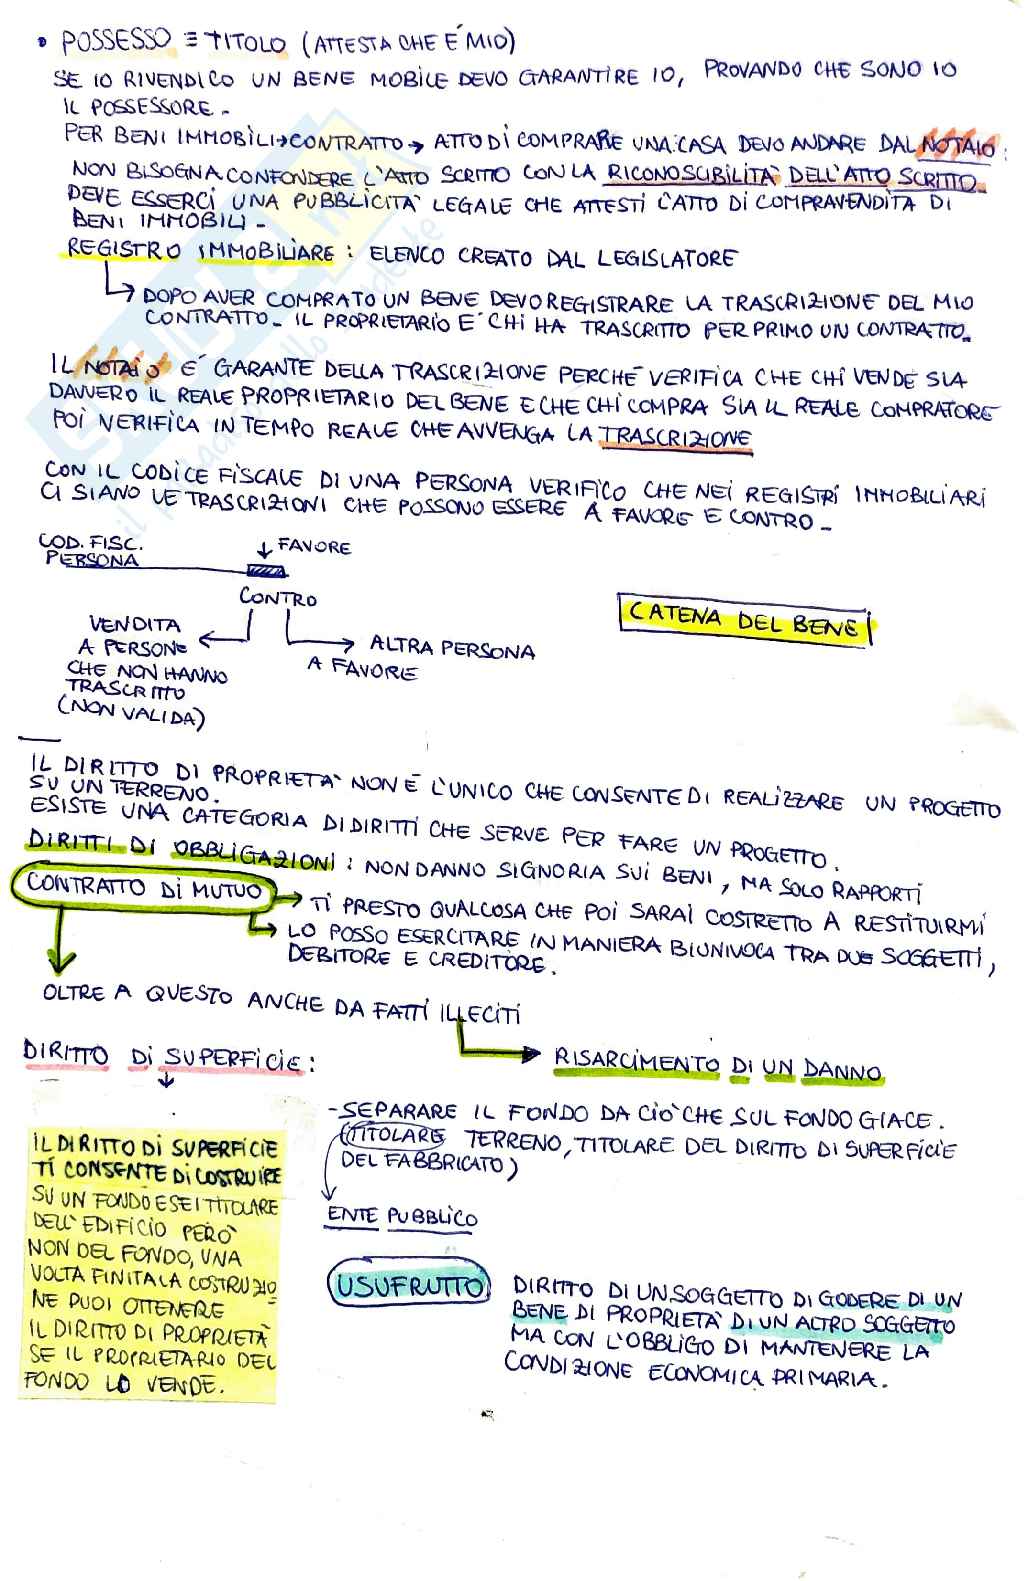 • POSSESSO ≡ TITOLO (ATTESTA CHE É MIO)
SE IO RIVENDICO UN BENE MOBILE DEVO GARANTIRE IO, PROVANDO CHE SONO IO
IL POSSESSORE -
PER BENI IMMOBILI → CONTRATTO → ATTO DI COMPRARE UNA CASA DEVO ANDARE DAL NOTAIO:
NON BISOGNA CONFONDERE L'ATTO SCRITTO CON LA RICONOSCIBILITÀ DELL'ATTO SCRITTO.
DEVE ESSERCI UNA PUBBLICITÀ LEGALE CHE ATTESTI L'ATTO DI COMPRAVENDITA DI
BENI IMMOBILI -
REGISTRO IMMOBILIARE : ELENCO CREATO DAL LEGISLATORE
DOPO AVER COMPRATO UN BENE DEVO REGISTRARE LA TRASCRIZIONE DEL MIO
CONTRATTO - IL PROPRIETARIO É CHI HA TRASCRITTO PER PRIMO UN CONTRATTO.
IL NOTAIO É GARANTE DELLA TRASCRIZIONE PERCHÉ VERIFICA CHE CHI VENDE SIA
DAVVERO IL REALE PROPRIETARIO DEL BENE E CHE CHI COMPRA SIA IL REALE COMPRATORE
POI VERIFICA IN TEMPO REALE CHE AVVENGA LA TRASCRIZIONE
CON IL CODICE FISCALE DI UNA PERSONA VERIFICO CHE NEI REGISTRI IMMOBILIARI
CI SIANO LE TRASCRIZIONI CHE POSSONO ESSERE A FAVORE E CONTRO -
COD. FISC.
PERSONA
↓ FAVORE
CONTRO
VENDITA
A PERSONE
CHE NON HANNO
TRASCRITTO
(NON VALIDA)
ALTRA PERSONA
A FAVORE
CATENA DEL BENE
IL DIRITTO DI PROPRIETÀ NON É L'UNICO CHE CONSENTE DI REALIZZARE UN PROGETTO
SU UN TERRENO.
ESISTE UNA CATEGORIA DI DIRITTI CHE SERVE PER FARE UN PROGETTO.
DIRITTI DI OBBLIGAZIONI : NON DANNO SIGNORIA SUI BENI, MA SOLO RAPPORTI
CONTRATTO DI MUTUO → TI PRESTO QUALCOSA CHE POI SARAI COSTRETTO A RESTITUIRMI
LO POSSO ESERCITARE IN MANIERA BIUNIVOCA TRA DUE SOGGETTI,
DEBITORE E CREDITORE.
OLTRE A QUESTO ANCHE DA FATTI ILLECITI
RISARCIMENTO DI UN DANNO
DIRITTO DI SUPERFICIE :
IL DIRITTO DI SUPERFICIE
TI CONSENTE DI COSTRUIRE
SU UN FONDO E SEI TITOLARE
DELL'EDIFICIO PERÒ
NON DEL FONDO, UNA
VOLTA FINITA LA COSTRUZIO
NE PUOI OTTENERE
IL DIRITTO DI PROPRIETÀ
SE IL PROPRIETARIO DEL
FONDO LO VENDE.
- SEPARARE IL FONDO DA CIÒ CHE SUL FONDO GIACE.
(TITOLARE TERRENO, TITOLARE DEL DIRITTO DI SUPERFICIE
DEL FABBRICATO)
ENTE PUBBLICO
USUFRUTTO
DIRITTO DI UN SOGGETTO DI GODERE DI UN
BENE DI PROPRIETÀ DI UN ALTRO SOGGETTO
MA CON L'OBBLIGO DI MANTENERE LA
CONDIZIONE ECONOMICA PRIMARIA.